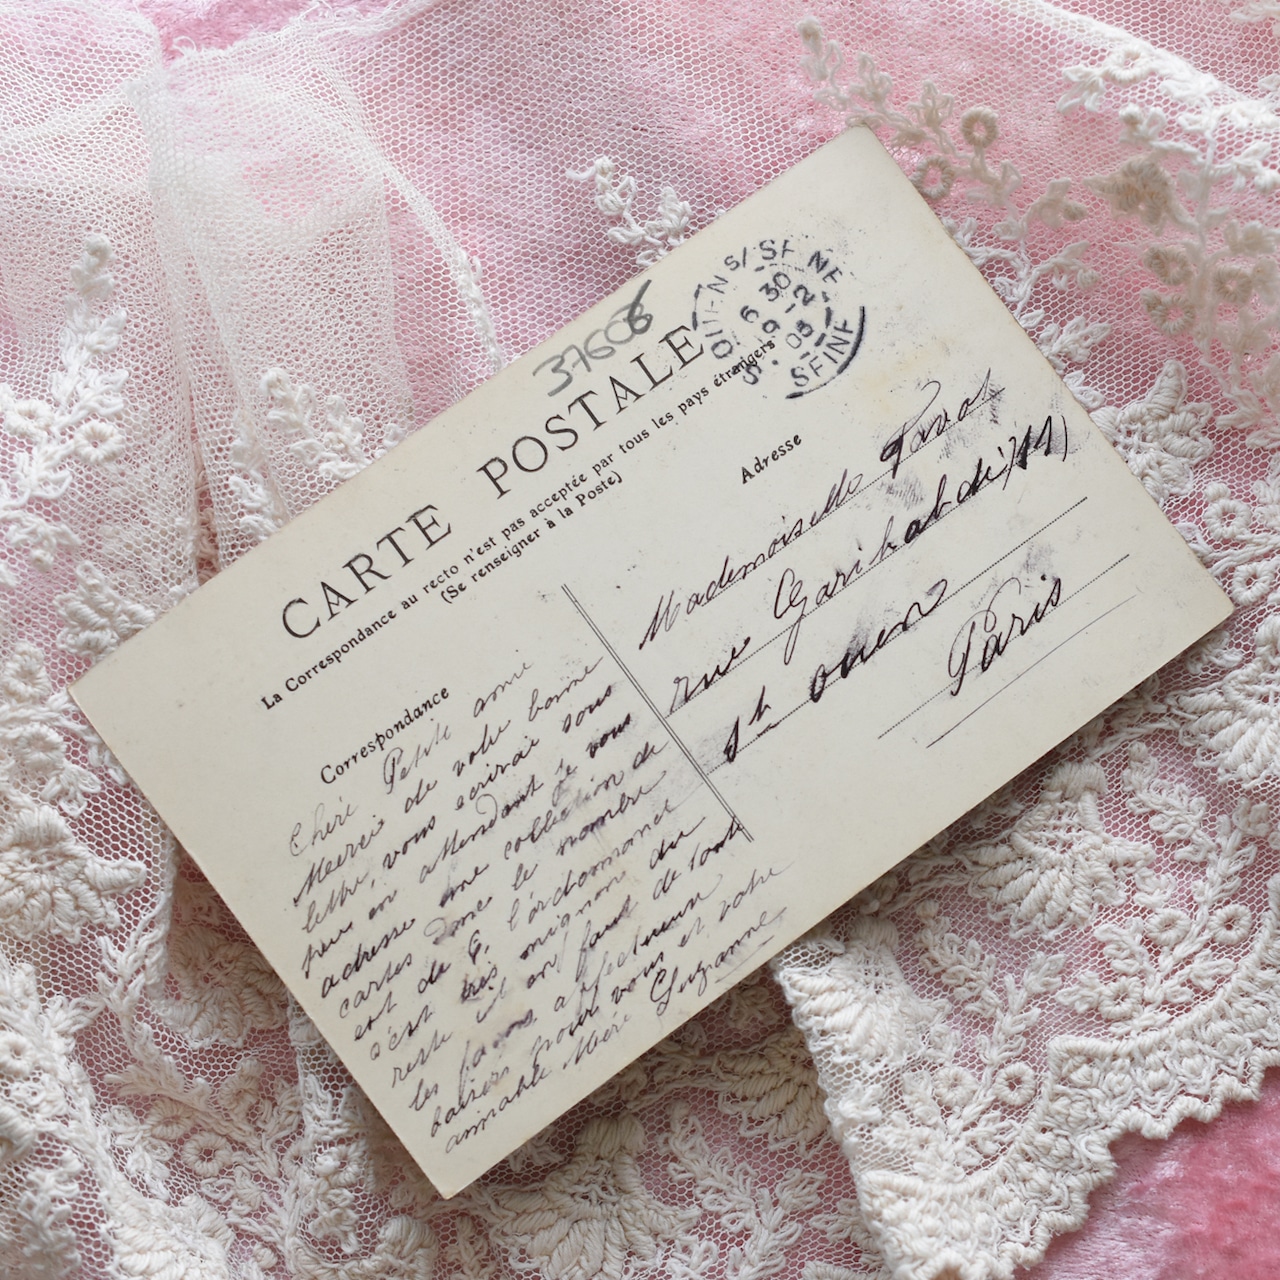 37606
CARTE POSTALE
La Correspondance au recto n'est pas acceptée par tous les pays étrangers
(Se renseigner à la Poste)
Correspondance
Adresse
6 30
9 -2
05
SEINE
Mademoiselle
rue Garibaldi
St Ouen
Paris
Chère Petite amie
Merci de votre bonne
lettre, vous écrirai sous
peu en attendant je vous
adresse une collection de
cartes dont le nombre
est de 6, l'ordonnance
c'est très mignonne du
reste il en faut de toutes
les façons affectueux
baisers pour vous et votre
aimable Mère Suzanne